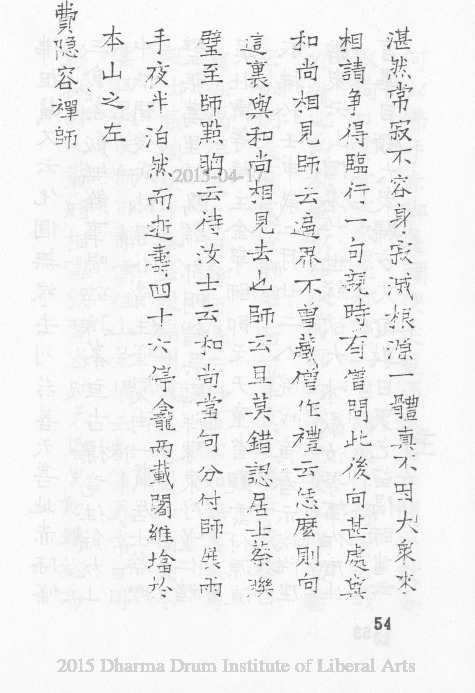 湛然常寂不容身寂滅根源一體真不因大衆來
相請争得臨行一句親時有僧問此後向甚處與
和尚相見師云遍界不曾藏僧作禮云恁麼則向
這裏與和尚相見去也師云且莫錯認居士蔡濼
璧至師㷛云待汝士云和尚當句分付師展兩
手夜半泊然而逝壽四十六停龕兩載闍維塔於
本山之左
費隐容禪師
2015-04-17
54
2015 Dharma Drum Institute of Liberal Arts